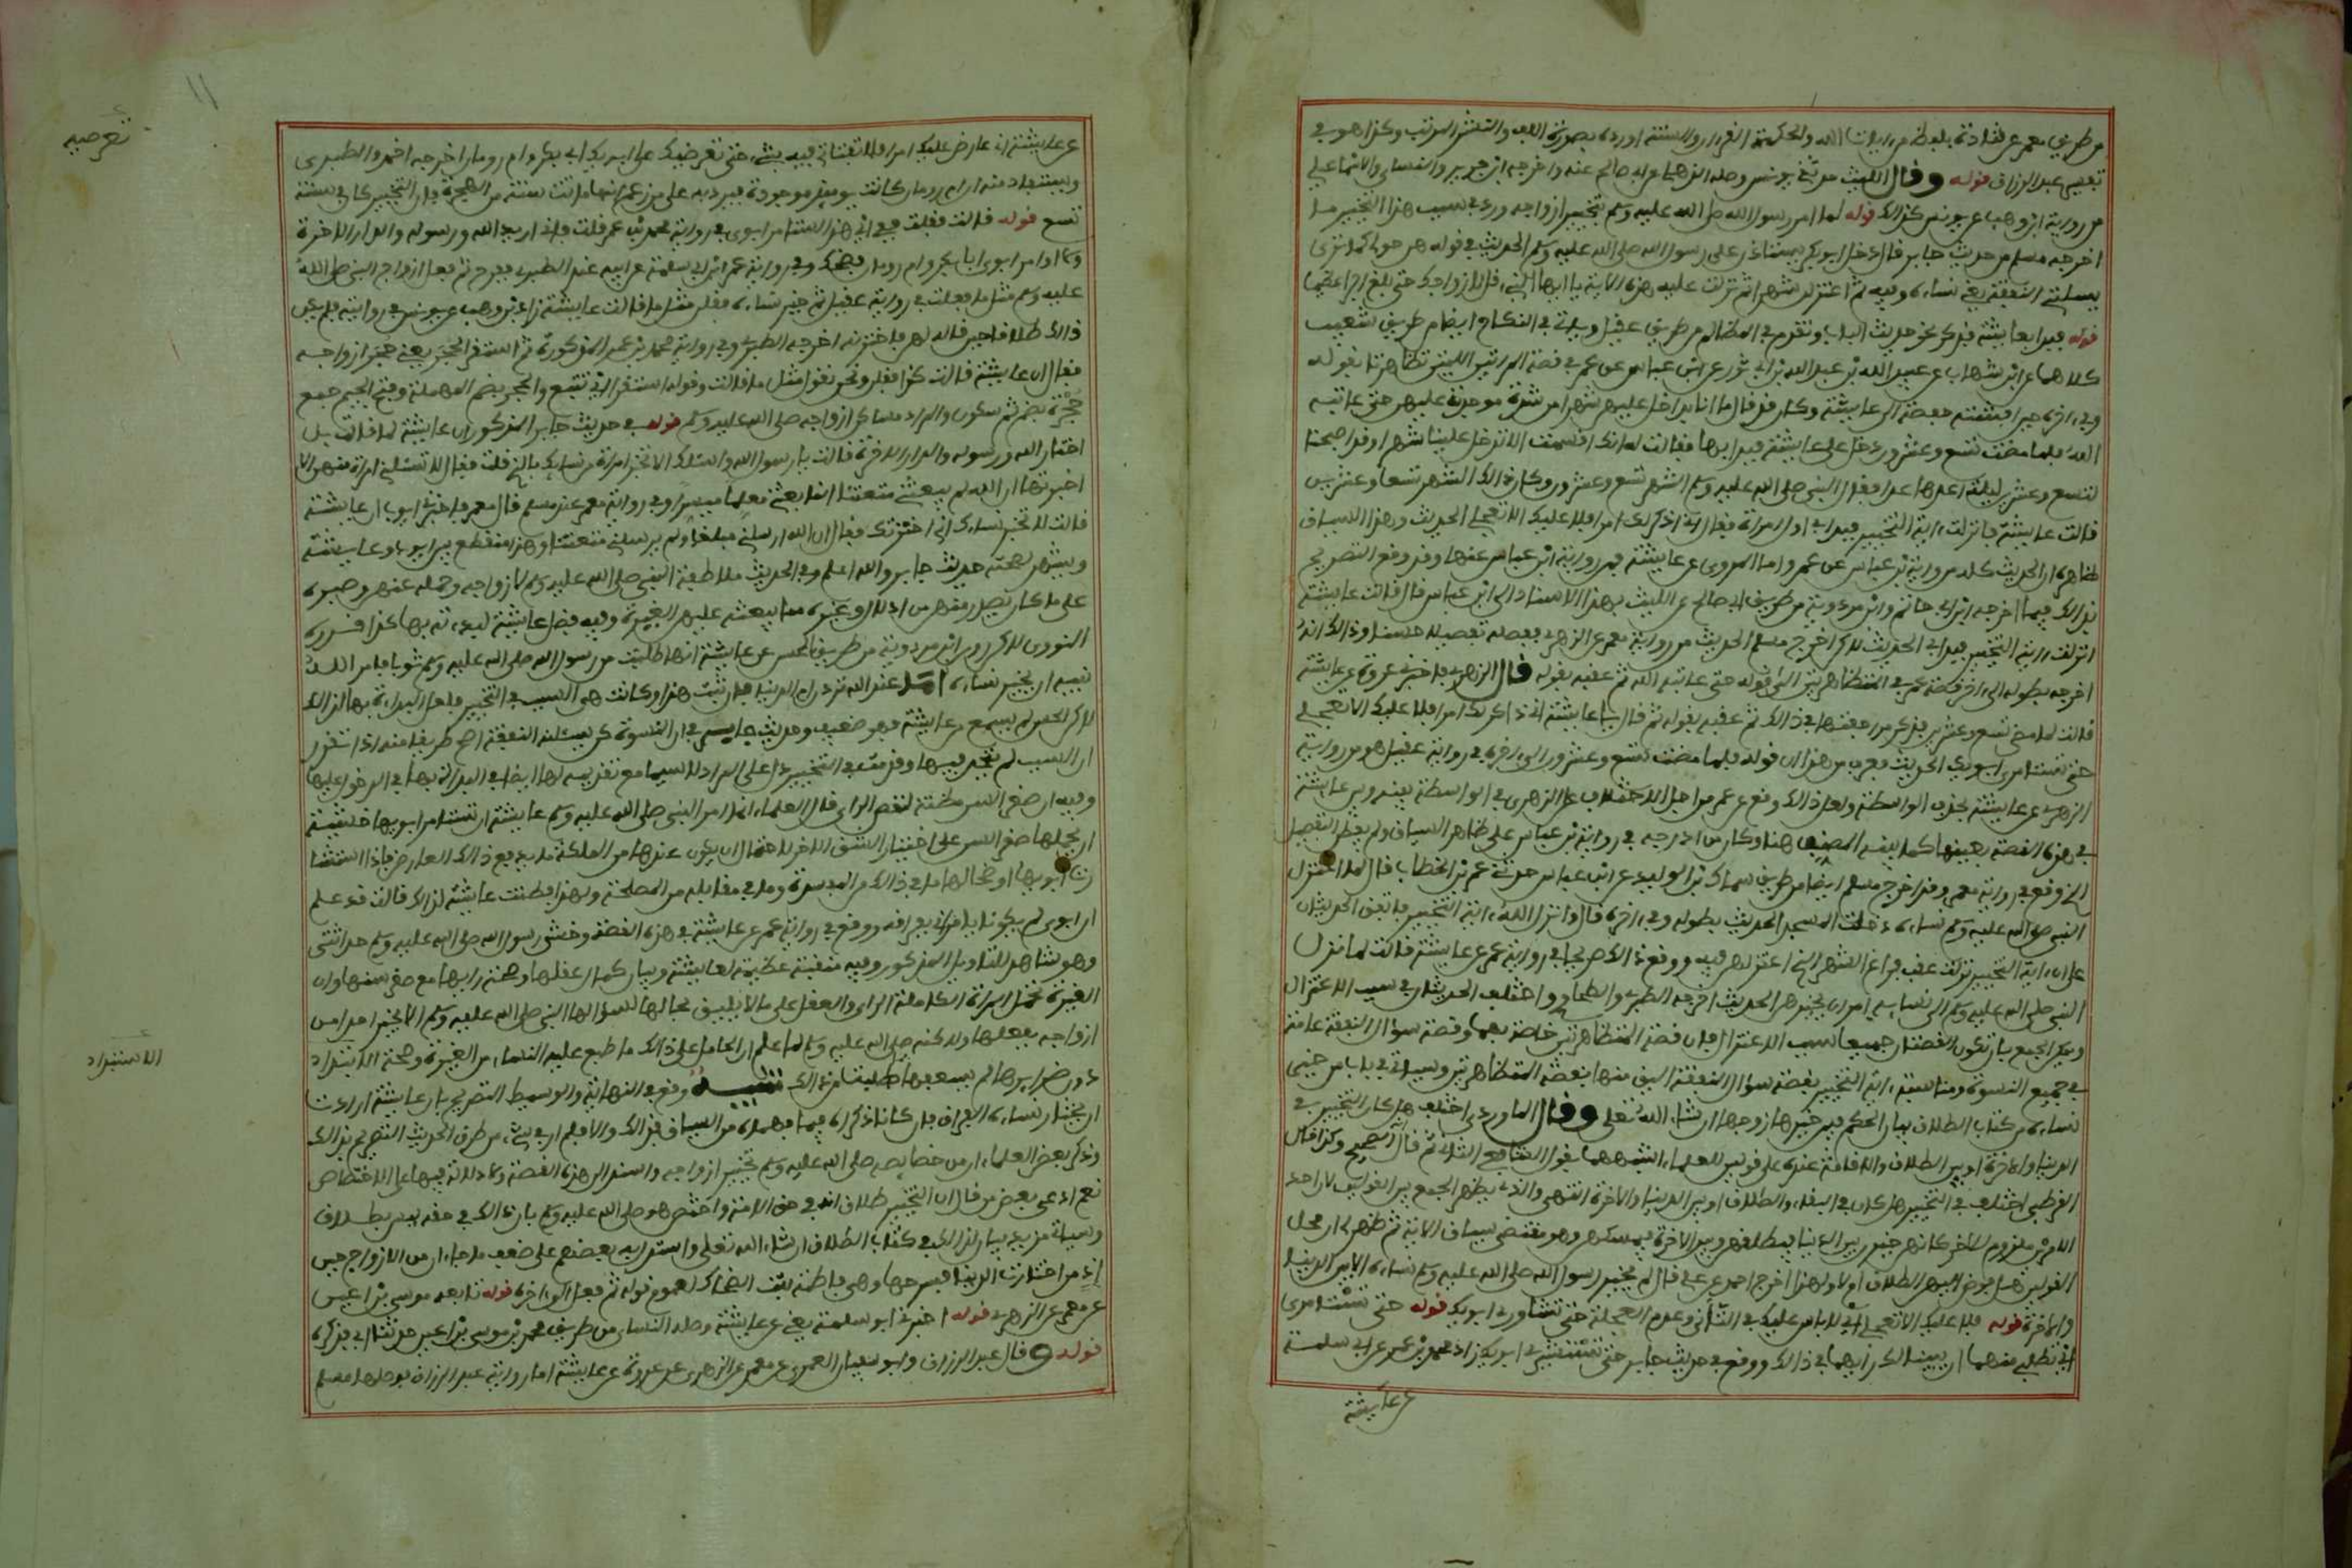 من طريق معمر عن قتادة بلفظ من ايات الله والحكمة القرءان والسنة اورده بصورة اللف والنشر المرتب وكذا هو في
تفسير عبد الرزاق قوله وقال الليث حدثني يونس وصله الذهلي عن ابي صالح عنه واخرجه ابن جرير والنساي والاسماعيلي
من رواية ابن وهب عن يونس كذالك قوله لما امر رسول الله صلى الله عليه وسلم بتخيير ازواجه ورد في سبب هذا التخيير ما
اخرجه مسلم من حديث جابر قال دخل ابو بكر يستاذن على رسول الله صلى الله عليه وسلم الحديث في قوله هن حولي كما ترى
يسلنني النفقة يعني نساءه وفيه ثم اعتزلهن شهرا ثم نزلت عليه هذه الاية يا ايها النبي قل لازواجك حتى بلغ اجرا عظيما
قوله فبدا بعايشة فذكر نحو حديث الباب وتقدم في المظالم من طريق عقيل وياتي في النكاح ايضا من طريق شعيب
كلاهما عن ابن شهاب عن عبيد الله بن عبد الله بن ابي ثور عن ابن عباس عن عمر في قصة المراتين اللتين تظاهرتا بطوله
وفي ءاخره حين افشته حفصة الى عايشة وكان قد قال ما انا بداخل عليهن شهرا من شدة موجدته عليهن حتى عاتبه
الله فلما مضت تسع وعشرون دخل على عايشة فبدا بها فقالت له انك اقسمت الا تدخل علينا شهرا وقد اصبحنا
لتسع وعشرين ليلة اعدها عدا فقال النبي صلى الله عليه وسلم الشهر تسع وعشرون وكان ذالك الشهر تسعا وعشرين
قالت عايشة فانزلت ءاية التخيير فبدا بي اول امراة فقال اني ذاكر لك امرا فلا عليك الا تعجلي الحديث وهذا السياق
ظاهره ان الحديث كله من رواية ابن عباس عن عمر واما المروي عن عايشة فمن رواية ابن عباس عنها وقد وقع التصريح
بذالك فيما اخرجه ابن ابي حاتم وابن مردوية من طريق ابي صالح عن الليث بهذا الاسناد الى ابن عباس قال قالت عايشة
انزلت ءاية التخيير فبدا بي الحديث لاكن اخرج مسلم الحديث من رواية معمر عن الزهري ففصله تفصيلا حسنا وذالك انه
اخرجه بطوله الى ءاخر قصة عمر في المتظاهرتين الى قوله حتى عاتبه الله ثم عقبه بقوله قال الزهري فاخبرني عروة عن عايشة
قالت لما مضى تسع وعشرين فذكر مراجعتها في ذالك ثم عقبه بقوله ثم قال يا عايشة اني ذاكر لك امرا فلا عليك الا تعجلي
حتى تستامري ابويك الحديث فعرف من هذا ان قوله فلما مضت تسع وعشرون الى ءاخره في رواية عقيل هو من رواية
الزهري عن عايشة بحذف الواسطة ولعل ذالك وقع عن عمد من اجل الاختلاف على الزهري في الواسطة بينه وبين عايشة
في هذه القصة بعينها كما بينه المصنف هنا وكان من ادرجه في رواية ابن عباس على ظاهر السياق ولم يفطن للتفصيل
الذي وقع في رواية معمر وقد اخرج مسلم ايضا من طريق سماك بن الوليد عن ابن عباس حدثني عمر بن الخطاب قال لما اعتزل
النبي صلى الله عليه وسلم نساءه دخلت المسجد الحديث بطوله وفي ءاخره قال وانزل الله ءاية التخيير فاتفق الحديثان
على ان ءاية التخيير نزلت عقب فراغ الشهر الذي اعتزلهن فيه ووقع ذالك صريحا في رواية عمرة عن عايشة قالت لما نزل
النبي صلى الله عليه وسلم الى نسايه امر ان يخيرهن الحديث اخرجه الطبري والطحاوي واختلف الحديثان في سبب الاعتزال
ويمكن الجمع بان تكون القصتان جميعا سبب الاعتزال فان قصة المتظاهرتين خاصة بهما وقصة سؤال النفقة عامة
في جميع النسوة ومناسبة ءاية التخيير بقصة سؤال النفقة اليق منها بقصة المتظاهرتين وسياتي في باب من خير
نساءه من كتاب الطلاق بيان الحكم فيمن خيرها زوجها ان شاء الله تعلى وقال الماوردي اختلف هل كان التخيير بين
الدنيا والاخرة او بين الطلاق والاقامة عنده على قولين للعلماء اشبههما بقول الشافعي الثاني ثم قال انه الصحيح وكذا قال
القرطبي اختلف في التخيير هل كان في البقاء والطلاق او بين الدنيا والاخرة انتهى والذي يظهر الجمع بين القولين لان احد
الامرين ملزوم للاخر كانهن خيرن بين الدنيا فيطلقهن وبين الاخرة فيمسكهن وهو مقتضى سياق الاية ثم ظهر لي ان محل
القولين هل فوض اليهن الطلاق ام لا ولهذا اخرج احمد عن علي قال لم يخير رسول الله صلى الله عليه وسلم نساءه الا بين الدنيا
والاخرة قوله فلا عليك الا تعجلي اي لا باس عليك في التاني وعدم العجلة حتى تشاوري ابويك قوله حتى تستامري
اي تطلبي منهما ان يبينا لك رايهما في ذالك ووقع في حديث جابر حتى تستشيري ابويك زاد محمد بن عمرو عن ابي سلمة
عن عايشة
١١
عن عايشة اني عارض عليك امرا فلا تفتاتي فيه بشيء حتى تعرضيه على ابويك ابي بكر وام رومان اخرجه احمد والطبري
تعرضيه
ويستفاد منه ان ام رومان كانت يوميذ موجودة فيرد به على من زعم انها ماتت سنة ست من الهجرة فان التخيير كان في سنة
تسع قوله قالت فقلت ففي اي هذا استامر ابوي في رواية محمد بن عمرو فقلت فاني اريد الله ورسوله والدار الاخرة
ولا اوامر ابوي ابا بكر وام رومان فضحك وفي رواية عمر بن ابي سلمة عن ابيه عند الطبري ففرح ثم فعل ازواج النبي صلى الله
عليه وسلم مثل ما فعلت في رواية عقيل ثم خير نساءه فقلن مثل ما قالت عايشة زاد ابن وهب عن يونس في روايته فلم يكن
ذالك طلاقا حين قاله لهن فاخترنه اخرجه الطبري وفي رواية محمد بن عمرو المذكورة ثم استقرا الحجر يعني حجر ازواجه
فقال ان عايشة قالت كذا فقلن ونحن نقول مثل ما قالت وقوله استقرا اي تتبع والحجر بضم المهملة وفتح الجيم جمع
حجرة بضم ثم سكون والمراد مساكن ازواجه صلى الله عليه وسلم قوله في حديث جابر المذكور ان عايشة لما قالت بل
اختار الله ورسوله والدار الاخرة قالت يا رسول الله واسئلك الا تخبر امراة من نسايك بالذي قلت فقال لا تسئلني امراة منهن الا
اخبرتها ان الله لم يبعثني متعنتا انما بعثني معلما ميسرا وفي رواية معمر عند مسلم قال معمر فاخبرني ايوب ان عايشة
قالت لا تخبر نساءك اني اخترتك فقال ان الله ارسلني مبلغا ولم يرسلني متعنتا وهذا منقطع بين ايوب وعايشة
ويشهد لصحته حديث جابر والله اعلم وفي الحديث ملاطفة النبي صلى الله عليه وسلم لازواجه وحمله عنهن وصبره
على ما كان يصدر منهن من ادلال وغيره مما يبعثه عليهن الغيرة وفيه فضل عايشة لبداءته بها كذا قرره
النووي لاكن روى ابن مردوية من طريق الحسن عن عايشة انها طلبت من رسول الله صلى الله عليه وسلم ثوبا فامر الله
نبيه ان يخير نساءه اما عند الله تردن ام الدنيا فان ثبت هذا وكانت هي السبب في التخيير فلعل البداءة بها لذالك
لاكن الحسن لم يسمع من عايشة فهو ضعيف وحديث جابر في ان النسوة كن يسئلنه النفقة اصح طريقا منه واذا تقرر
ان السبب لم يتحد فيها وقدمت في التخيير دل على المراد لا سيما مع تقديمه لها ايضا في البداءة بها في الدخول عليها
وفيه ان صغر السن مظنة لنقص الراي قال العلماء انما امر النبي صلى الله عليه وسلم عايشة ان تستامر ابويها خشية
ان يحملها صغر السن على اختيار الشق الاخر لاحتمال ان لا يكون عندها من الملكة ما يدفع ذالك العارض فاذا استشا
رت ابويها اوضحا لها ما في ذالك من المفسدة وما في مقابله من المصلحة ولهذا فطنت عايشة لذالك قالت قد علم
ان ابوي لم يكونا يامراني بفراقه ووقع في رواية عمرة عن عايشة في هذه القصة وخشي رسول الله صلى الله عليه وسلم حداثتي
وهو شاهد للتاويل المذكور وفيه منقبة عظيمة لعايشة وبيان كمال عقلها وصحة رايها مع صغر سنها وان
الغيرة تحمل المراة الكاملة الراي والعقل على ما لا يليق بحالها لسؤالها النبي صلى الله عليه وسلم الا يخبر احدا من
ازواجه بفعلها ولاكنه صلى الله عليه وسلم لما علم ان الحامل على ذالك ما طبع عليه النساء من الغيرة ومحبة الاستبداد
الاستبداد
دون ضرايرها لم يسعفها بما طلبت من ذالك تنبيه وقع في النهاية والوسيط التصريح بان عايشة ارادت
ان يختار نساءه الفراق فان كانا ذكراه فيما فهماه من السياق فذالك والا فلم ار في شيء من طرق الحديث التصريح بذالك
وذكر بعض العلماء ان من خصايصه صلى الله عليه وسلم تخيير ازواجه واستند الى هذه القصة ولا دلالة فيها على الاختصاص
نعم ادعى بعض من قال ان التخيير طلاق انه في حق الامة واختص هو صلى الله عليه وسلم بان ذالك في حقه ليس بطلاق
وسياتي مزيد بيان لذالك في كتاب الطلاق ان شاء الله تعلى واستدل به بعضهم على ضعف ما جاء ان من الازواج حينيـ
ـذ من اختارت الدنيا فتزوجها وهي فاطمة بنت الضحاك لعموم قوله ثم فعل الى ءاخره قوله تابعه موسى بن اعين
عن معمر عن الزهري قوله اخبرني ابو سلمة يعني عن عايشة وصله النساي من طريق محمد بن موسى بن اعين حدثنا ابي فذكره
قوله وقال عبد الرزاق وابو سفيان المعمري عن معمر عن الزهري عن عروة عن عايشة اما رواية عبد الرزاق فوصلها مسلم